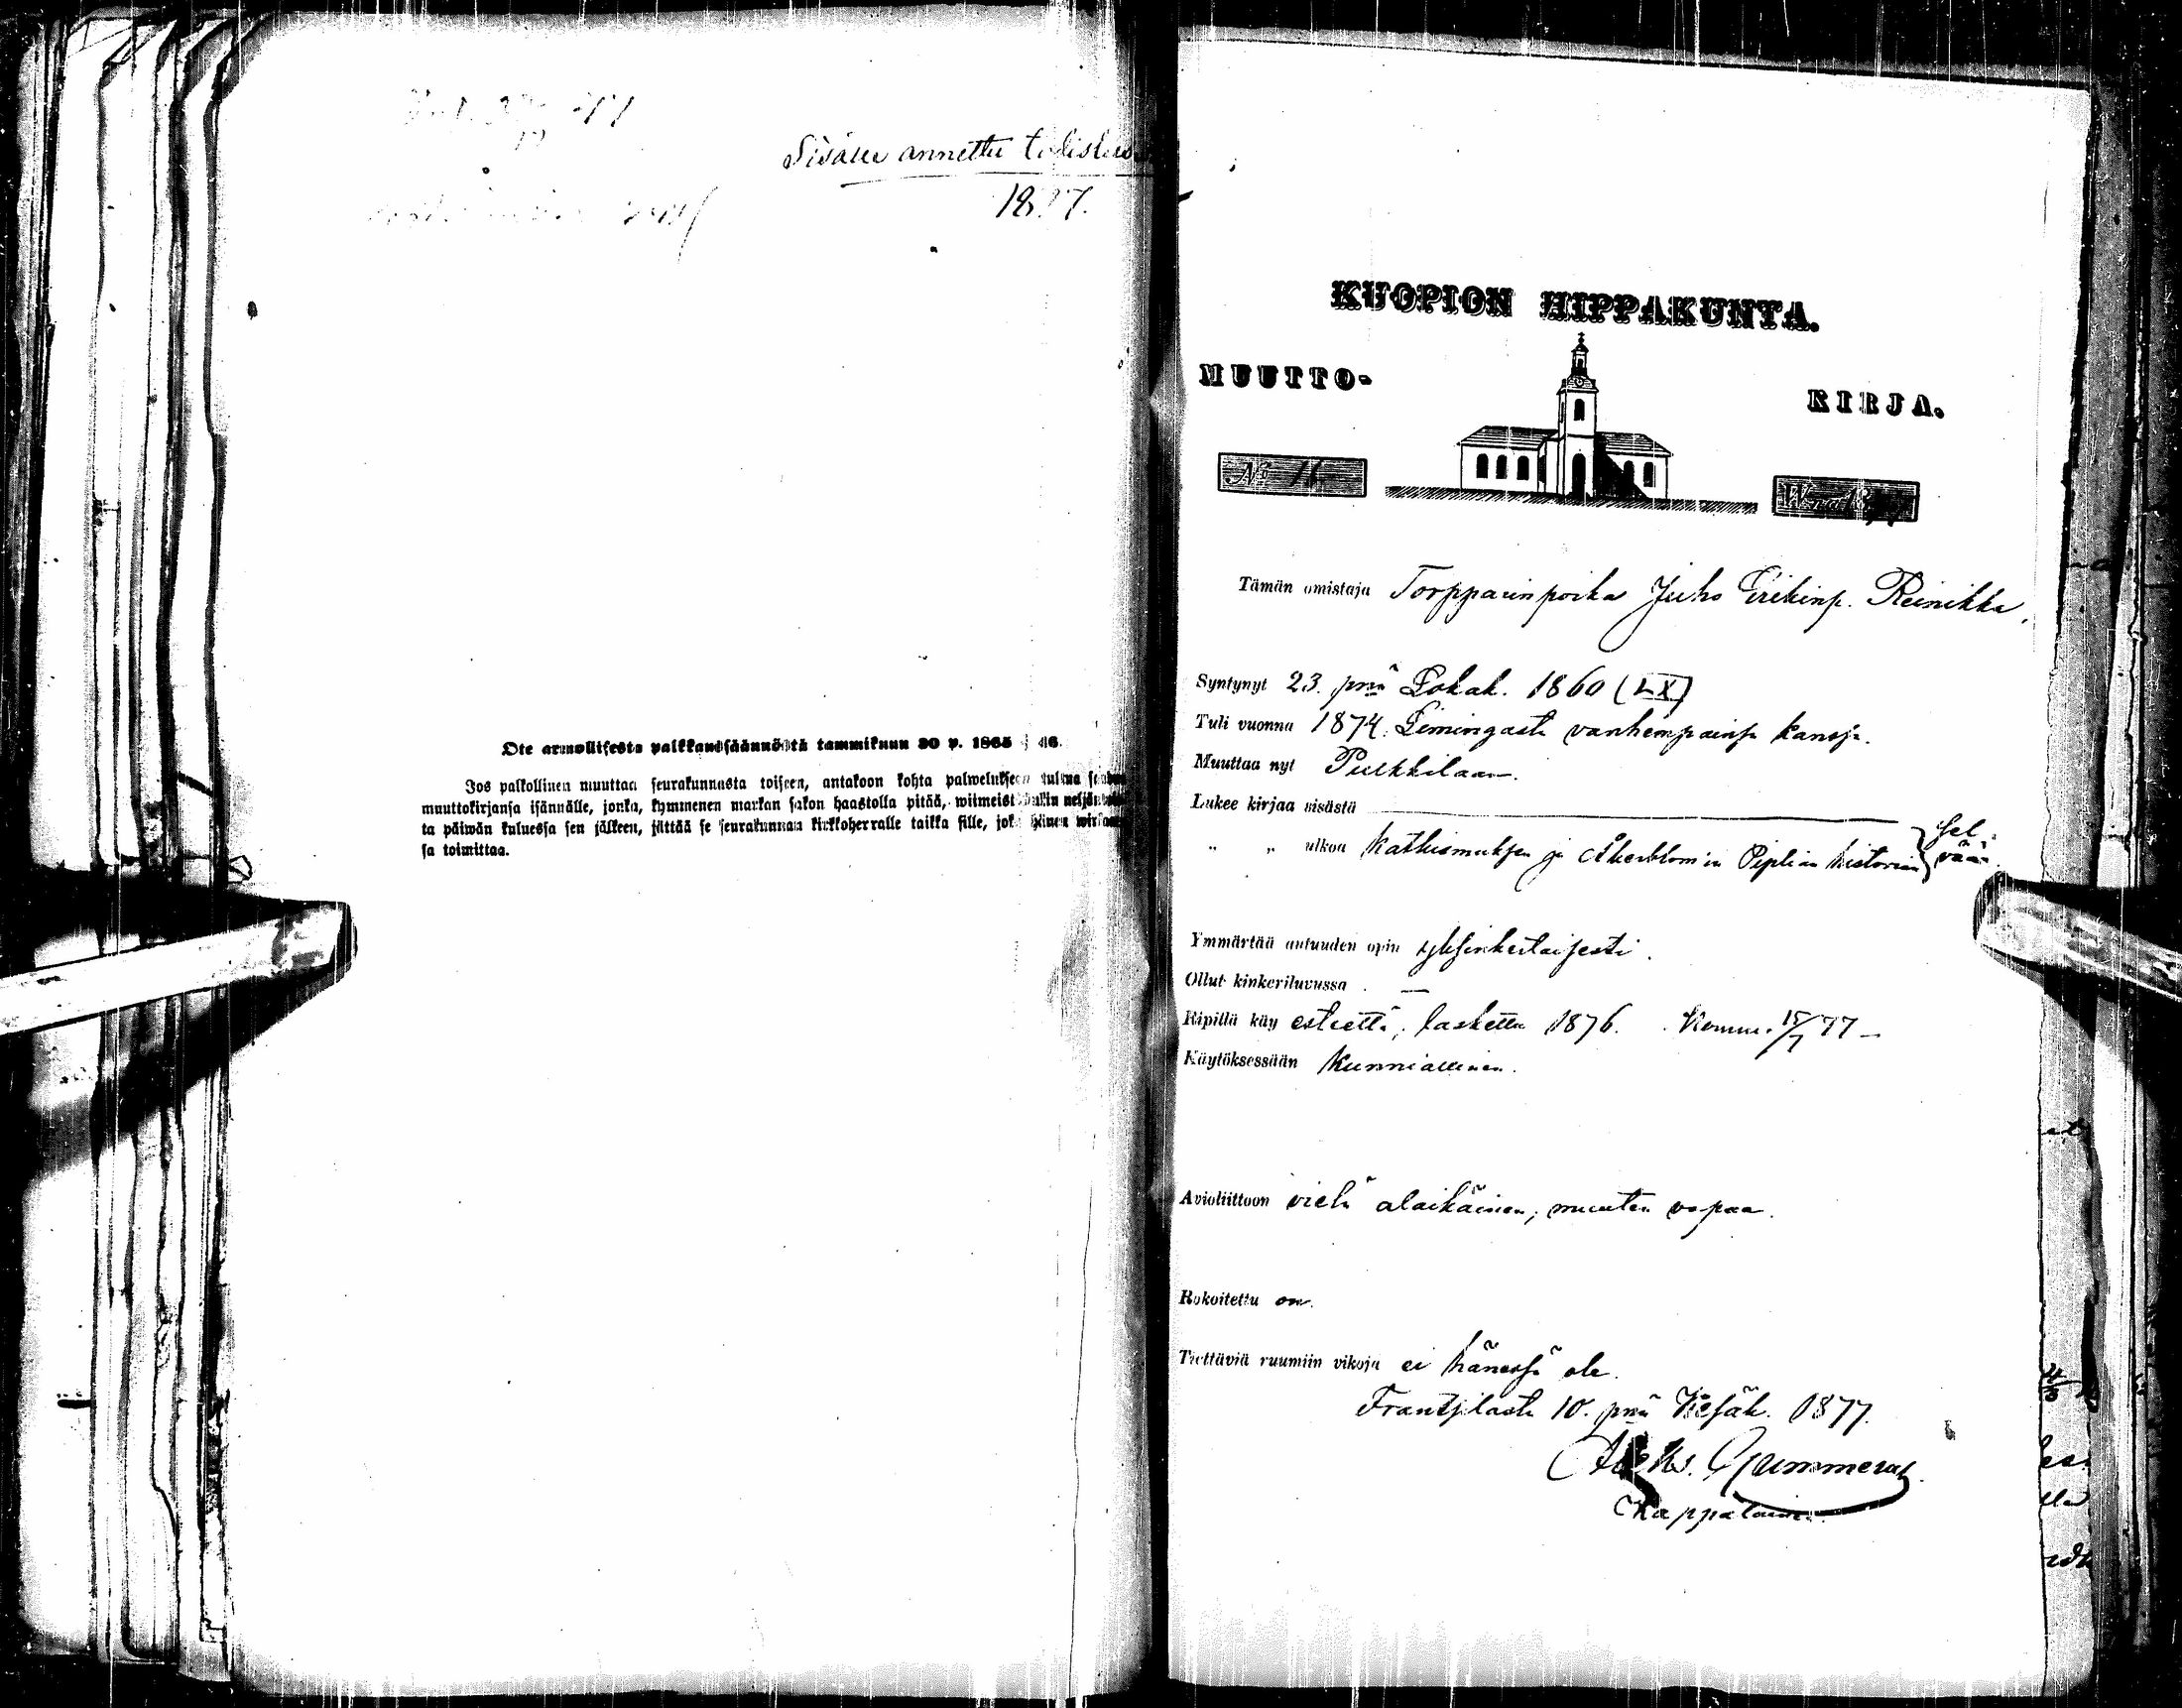 Sisälle annettu todistus
18 7.
Ote armollisesta palkkaussäännöstä tammikuun 30 p. 1865 § 46.
Jos palkollinen muuttaa seurakunnasta toiseen, antakoon kohta palwelukseen tultua
muuttokirjansa isännälle, jonka, kymmenen markan sakon haastolla pitää, wiimeist
ta päiwän kuluessa sen jälkeen, jättää se seurakunnan kirkkoherralle taikka sille, joka hänen
sa toimittaa.
KUOPION HIPPAKUNTA.
MUUTTO-
KIRJA.
No 16
W:na 1877
Tämän omistaja Torpparinpoika Juho Erikinp. Reinikka,
Syntynyt 23. pnä Lokak. 1860 (LX)
Tuli vuonna 1874. Limingasta vanhempainsa kanssa.
Muuttaa nyt Pulkkilaan.
Lukee kirjaa sisästä
" " ulkoa Katkismuksen ja Åkerblom'in Piplian historian } selvää.
Ymmärtää autuuden opin yksinkertaisesti.
Ollut kinkeriluvussa . —
Ripillä käy esteettä, laskettu 1876. Komm. 15/7 77 —
Käytöksessään Kunniallinen.
Avioliittoon vielä alaikäinen; muuten vapaa.
Rokoitettu on.
Tiettäviä ruumiin vikoja ei hänessä ole.
Frantsilasta 10. pnä Kesäk. 1877.
Aleks. Gummerus.
Kappalainen